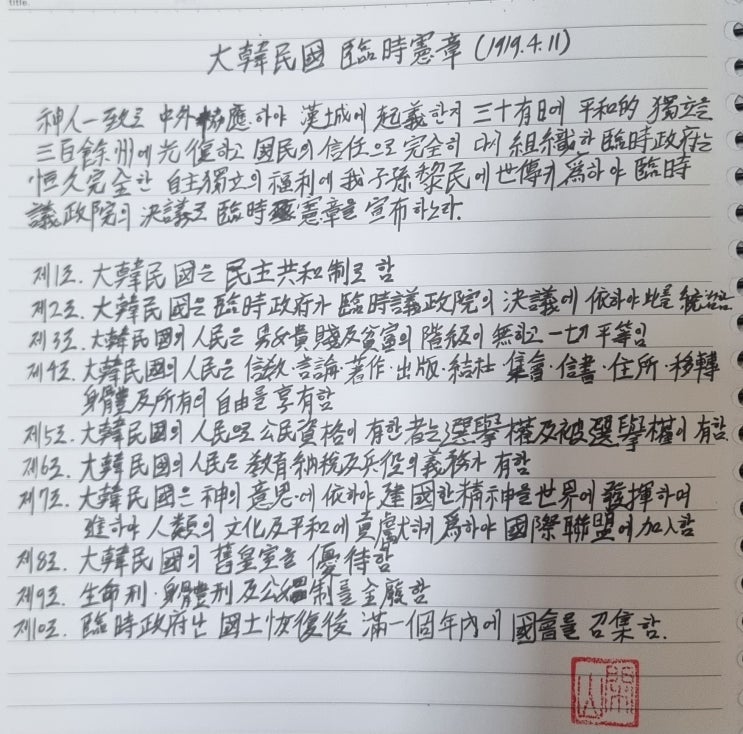 title.
大韓民國 臨時憲章 (1919.4.11)
神人一致로 中外協應하야 漢城에 起義한지 三十有日에 平和的 獨立을
三百餘州에 光復하고 國民의 信任으로 完全히 다시 組織한 臨時政府는
恒久完全한 自主獨立의 福利에 我子孫黎民에 世傳키 爲하야 臨時
議政院의 決議로 臨時憲章을 宣布하노라.
제1조. 大韓民國은 民主共和制로 함
제2조. 大韓民國은 臨時政府가 臨時議政院의 決議에 依하야 此를 統治함
제3조. 大韓民國의 人民은 男女貴賤及貧富의 階級이 無하고 一切平等임
제4조. 大韓民國의 人民은 信敎·言論·著作·出版·結社·集會·信書·住所·移轉
身體及所有의 自由를 享有함
제5조. 大韓民國의 人民으로 公民資格이 有한 者는 選擧權及被選擧權이 有함
제6조. 大韓民國의 人民은 敎育納稅及兵役의 義務가 有함
제7조. 大韓民國은 神의 意思에 依하야 建國한 精神을 世界에 發揮하며
進하야 人類의 文化及平和에 貢獻하기 爲하야 國際聯盟에 加入함
제8조. 大韓民國의 舊皇室을 優待함
제9조. 生命刑·身體刑及公娼制를 全廢함
제10조. 臨時政府난 國土恢復後 滿一個年內에 國會를 召集함.